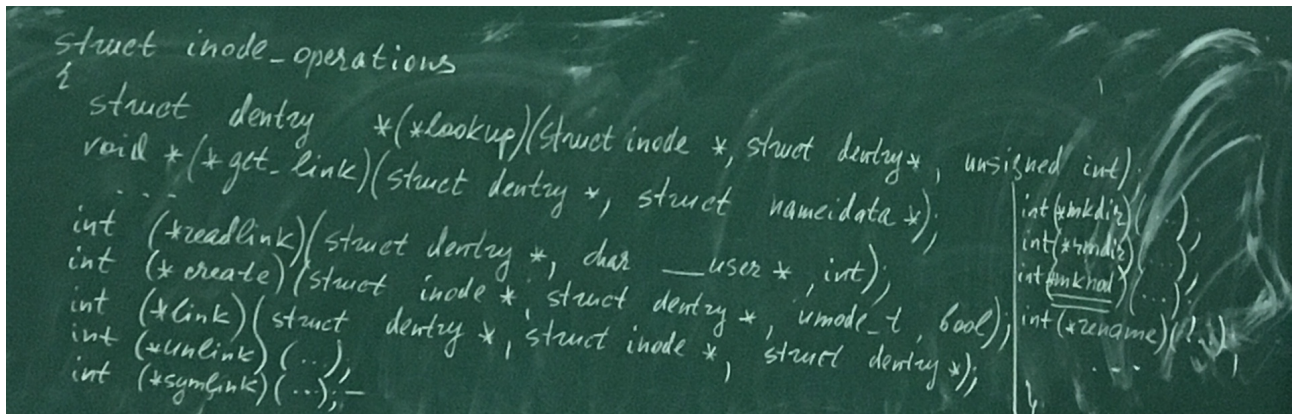 struct inode_operations
{
struct dentry *(*lookup)(struct inode *, struct dentry *, unsigned int);
void *(*get_link)(struct dentry *, struct nameidata *);
....
int (*readlink)(struct dentry *, char __user *, int);
int (*create)(struct inode *, struct dentry *, umode_t, bool);
int (*link)(struct dentry *, struct inode *, struct dentry *);
int (*unlink)(...);
int (*symlink)(...);
int (*mkdir)(...);
int (*rmdir)(...);
int (*mknod)(...);
int (*rename)(...);
....
};